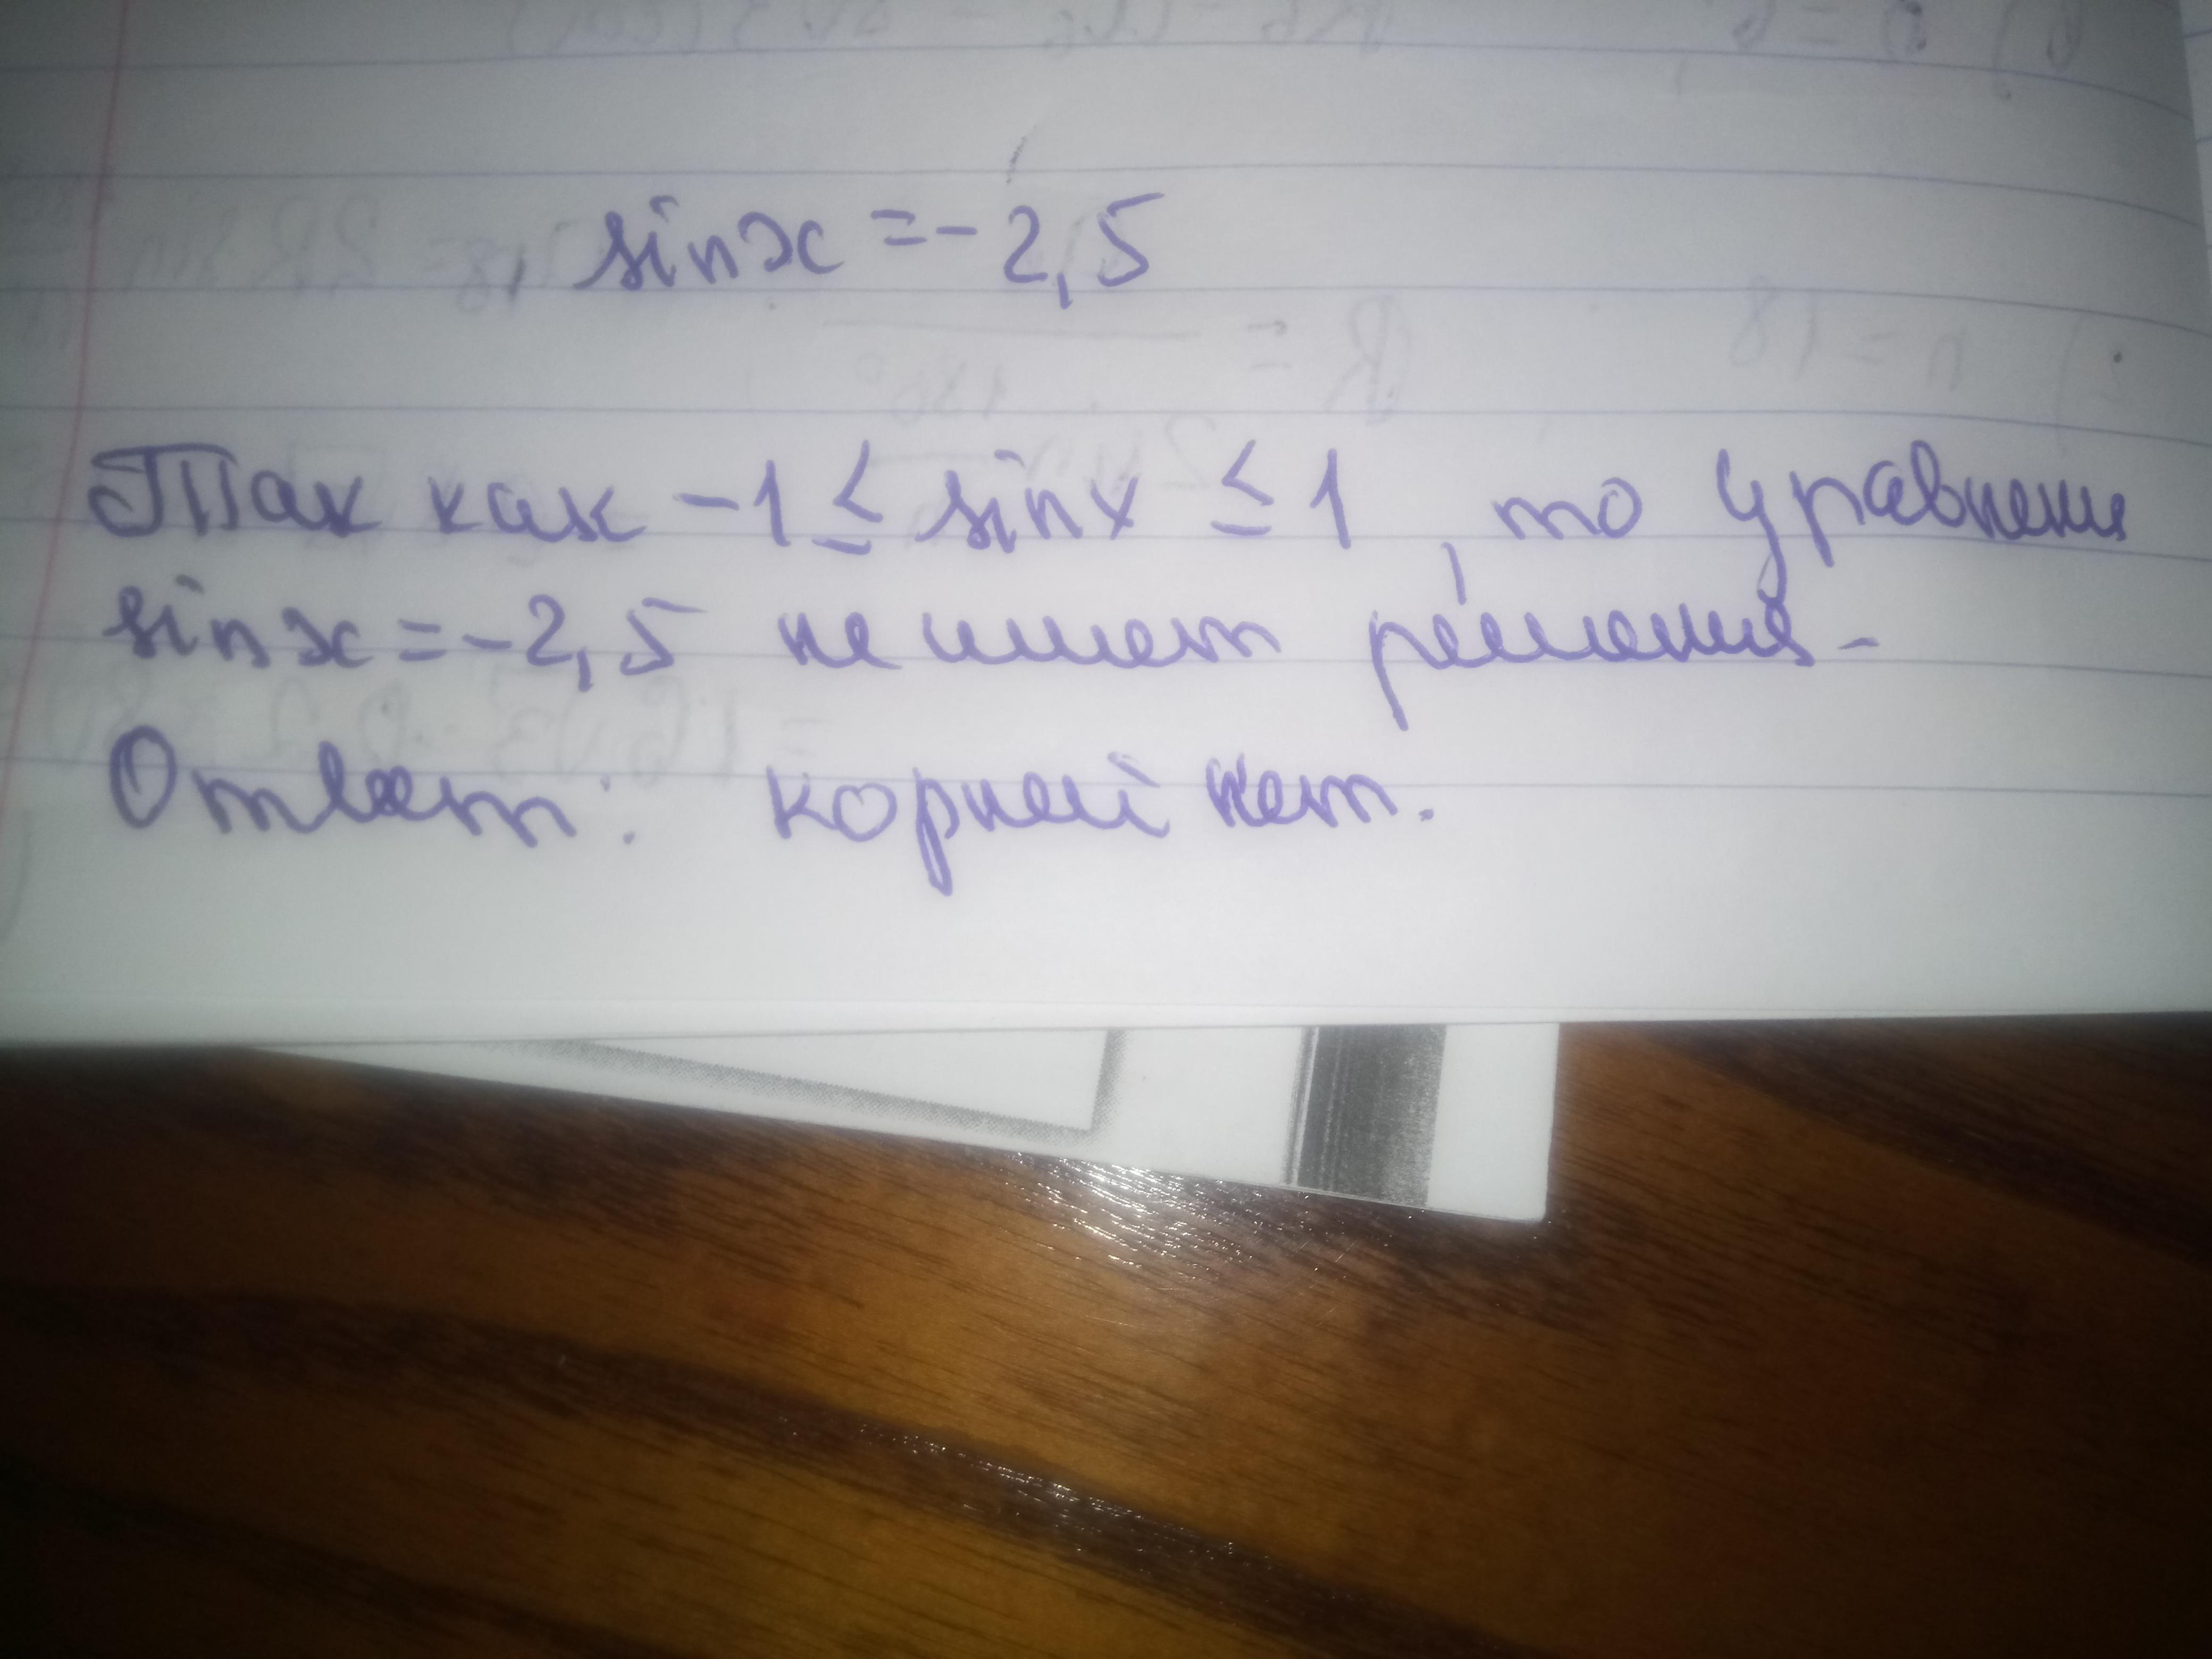 sin x = - 2,5
Так как -1 ≤ sin x ≤ 1, то уравнени
sin x = - 2,5 не имеет решения-
Ответ: корней нет.